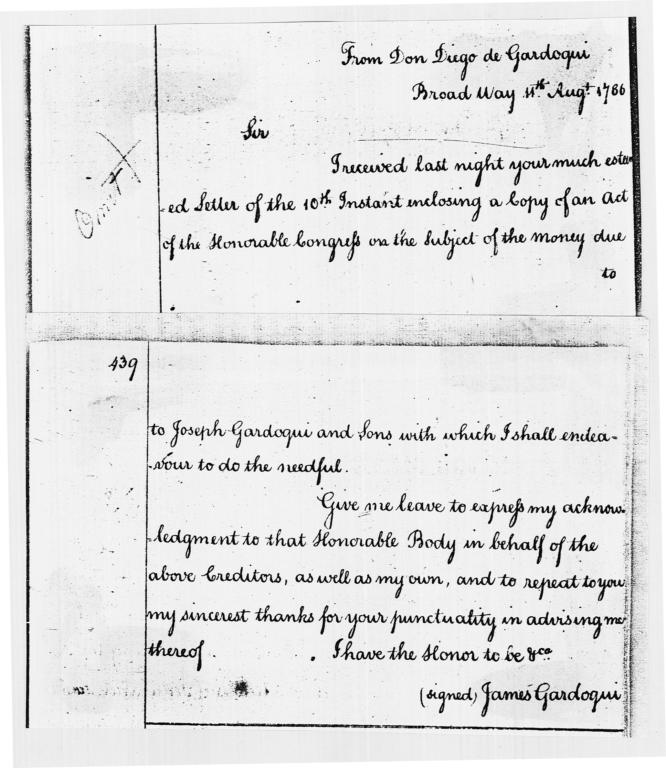 From Don Diego de Gardoqui
Broad Way 11th Augt 1786
Sir
Omit
I received last night your much esteem
-ed Letter of the 10th Instant enclosing a Copy of an Act
of the Honorable Congress on the Subject of the money due
to
439
to Joseph Gardoqui and Sons with which I shall endea-
-vour to do the needful.
Give me leave to express my acknow-
-ledgment to that Honorable Body in behalf of the
above Creditors, as well as my own, and to repeat to you
my sincerest thanks for your punctuality in advising me
thereof. I have the Honor to be &ca
(signed) James Gardoqui